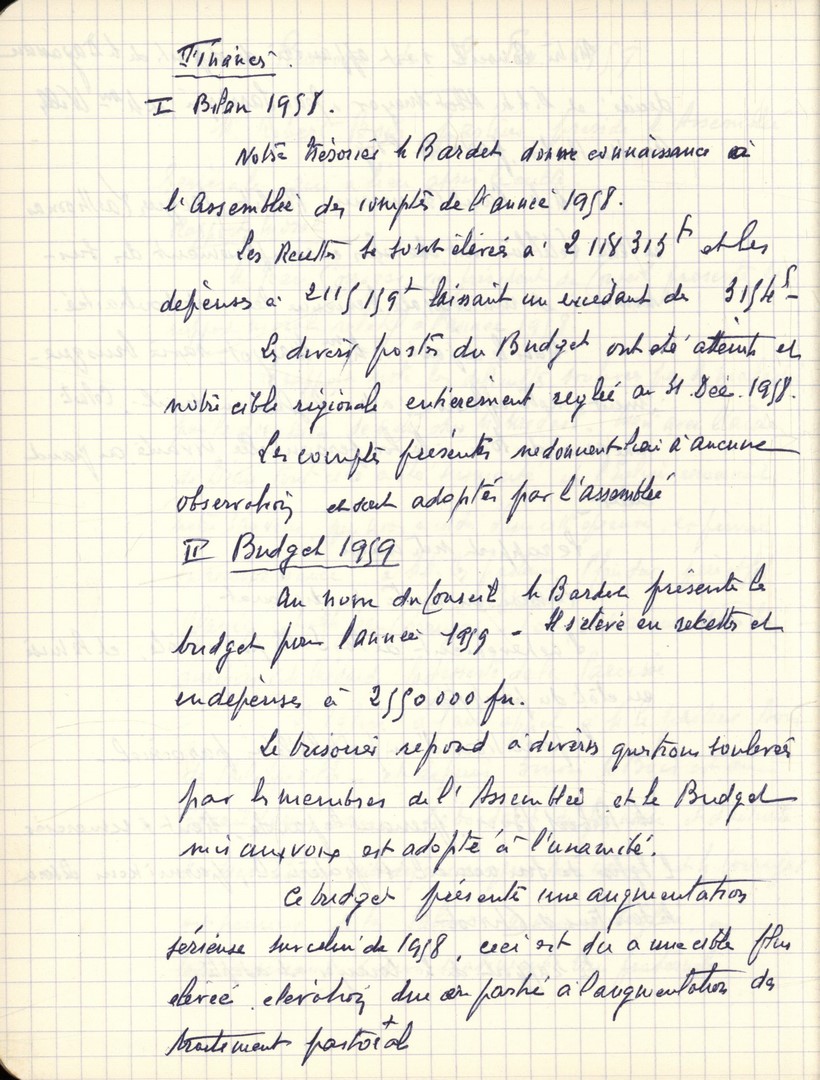 Finances.
I Bilan 1958.
Notre trésorier Mr Bardet donne connaissance à
l'Assemblée des comptes de l'année 1958.
Les Recettes se sont élevées à 2 118 313 f et les
dépenses à 2 115 159 f laissant un excedant de 3154 f -
Les divers postes du Budget ont été atteints et
notre cible régionale entièrement reglée au 31 Déc. 1958.
Les comptes présentés ne donnent lieu à aucune
observation et sont adoptés par l'assemblée
II Budget 1959
Au nom du Conseil Mr Bardet présente le
budget pour l'année 1959 - Il s'élève en recettes et
en dépenses à 2550000 frs.
Le trésorier répond à divers questions soulevées
par les membres de l'Assemblée et le Budget
mis aux voix est adopté à l'unanimité.
Ce budget présente une augmentation
sérieuse sur celui de 1958, ceci est du a une cible plus
élevée élévation due en partie à l'augmentation du
traitement pastoral